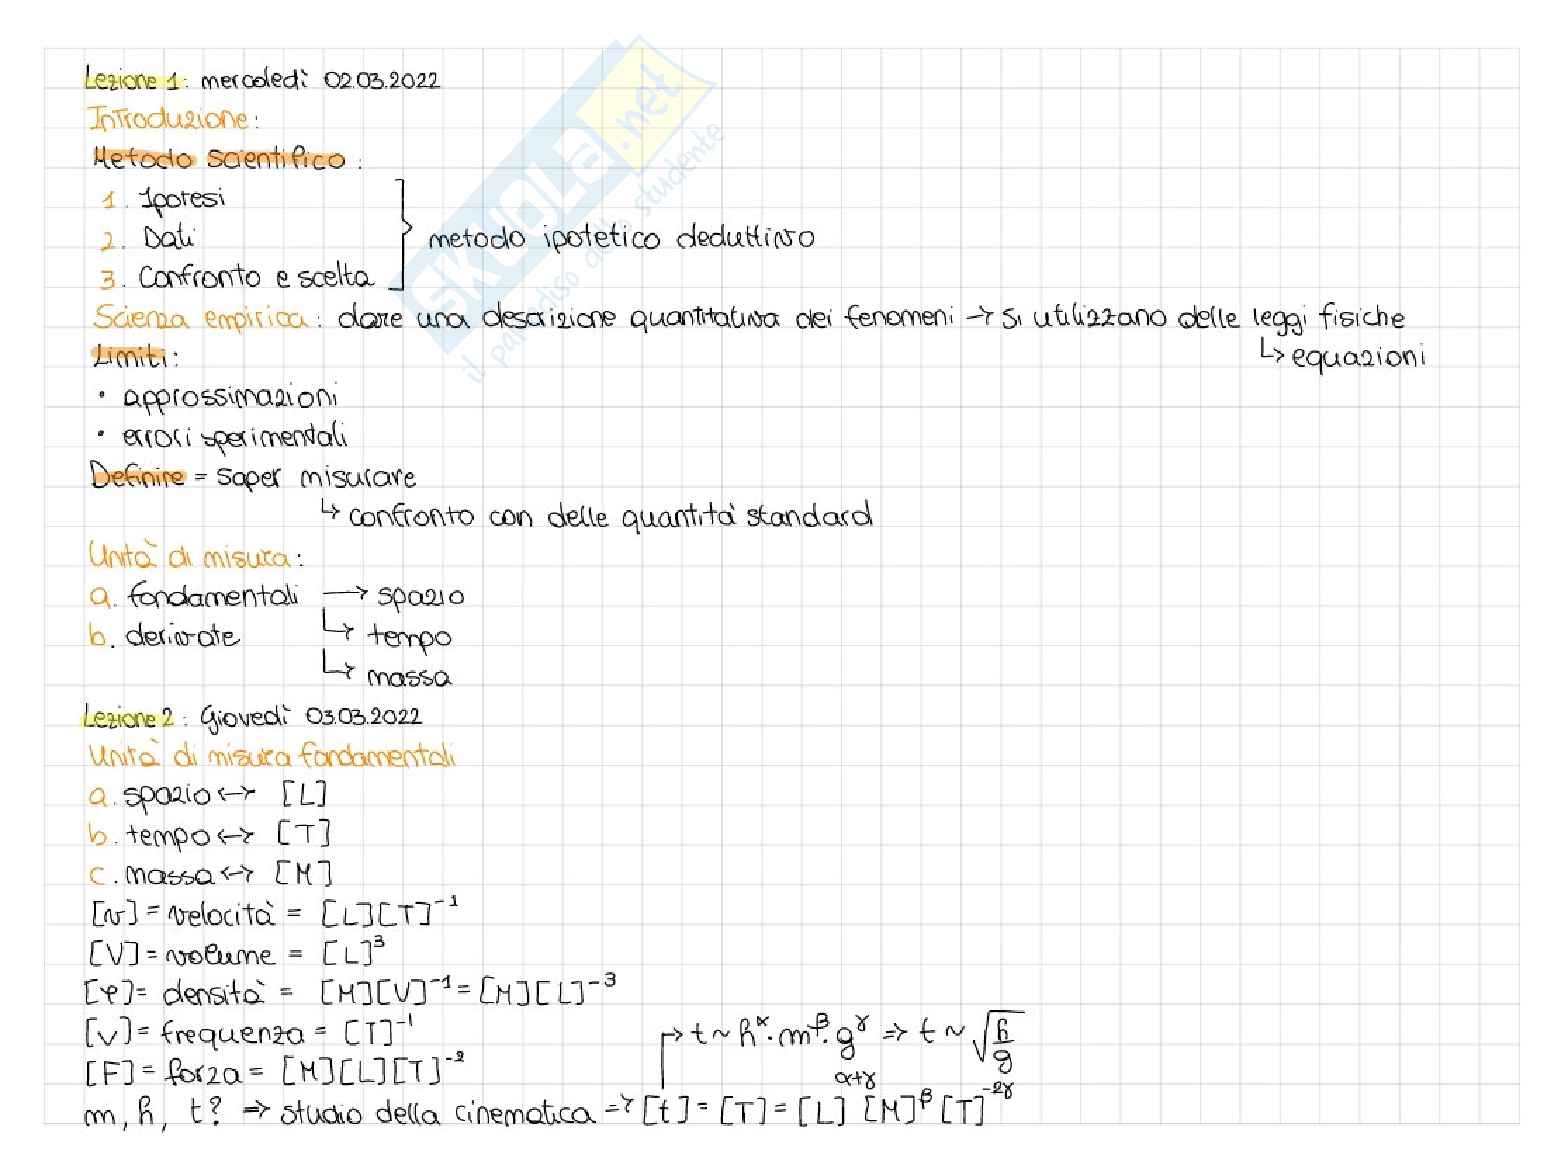 Lezione 1: mercoledì 02.03.2022
Introduzione:
Metodo scientifico:
1. Ipotesi
2. Dati
3. Confronto e scelta
metodo ipotetico deduttivo
Scienza empirica: dare una descrizione quantitativa dei fenomeni → si utilizzano delle leggi fisiche
↳ equazioni
Limiti:
• approssimazioni
• errori sperimentali
Definire = saper misurare
↳ confronto con delle quantità standard
Unità di misura:
a. fondamentali → spazio
b. derivate ↳ tempo
↳ massa
Lezione 2: Giovedì 03.03.2022
Unità di misura fondamentali
a. spazio ↔ [L]
b. tempo ↔ [T]
c. massa ↔ [M]
[v] = velocità = [L][T]⁻¹
[V] = volume = [L]³
[ρ] = densità = [M][V]⁻¹ = [M][L]⁻³
[ν] = frequenza = [T]⁻¹
[F] = forza = [M][L][T]⁻²
→ t ~ h^α · m^β · g^γ ⇒ t ~ √(h/g)
m, h, t? ⇒ studio della cinematica ⇒ [t] = [T] = [L]^(α+γ) [M]^β [T]^(-2γ)
SKUOLA.net
il paradiso dello studente